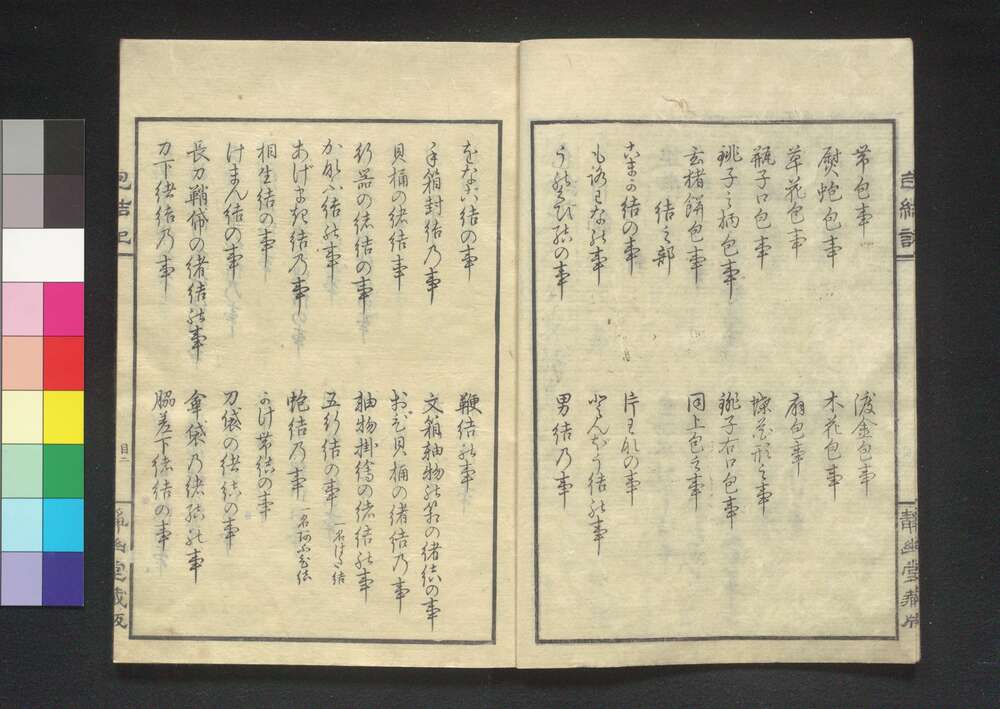 帯包の事
熨蚫包事
草花包事
瓶子口包事
銚子之柄包事
玄猪餅包事
結之部
結の事
もろわな の事
うけむすび 結の事
渡金包事
木花包事
扇包事
蝶花形之事
銚子右口包事
同上包之事
片わなの事
とんぼう結の事
男結乃事
をな结の事
手箱封结乃事
貝桶の緒結事
行器の緒結の事
結の事
あげまき結乃事
相生結の事
けまん結の事
長刀鞘袋の緒結の事
刀下緒結乃事
鞭結の事
文箱軸物の箱の緒結の事
おび貝桶の緒結乃事
軸物掛緒の結の事
五行結の事
蚫結乃事
かけ帯結の事
刀袋の緒結の事
傘袋乃緒結の事
脇差下緒結の事
包結記
靜幽堂蔵版
目二